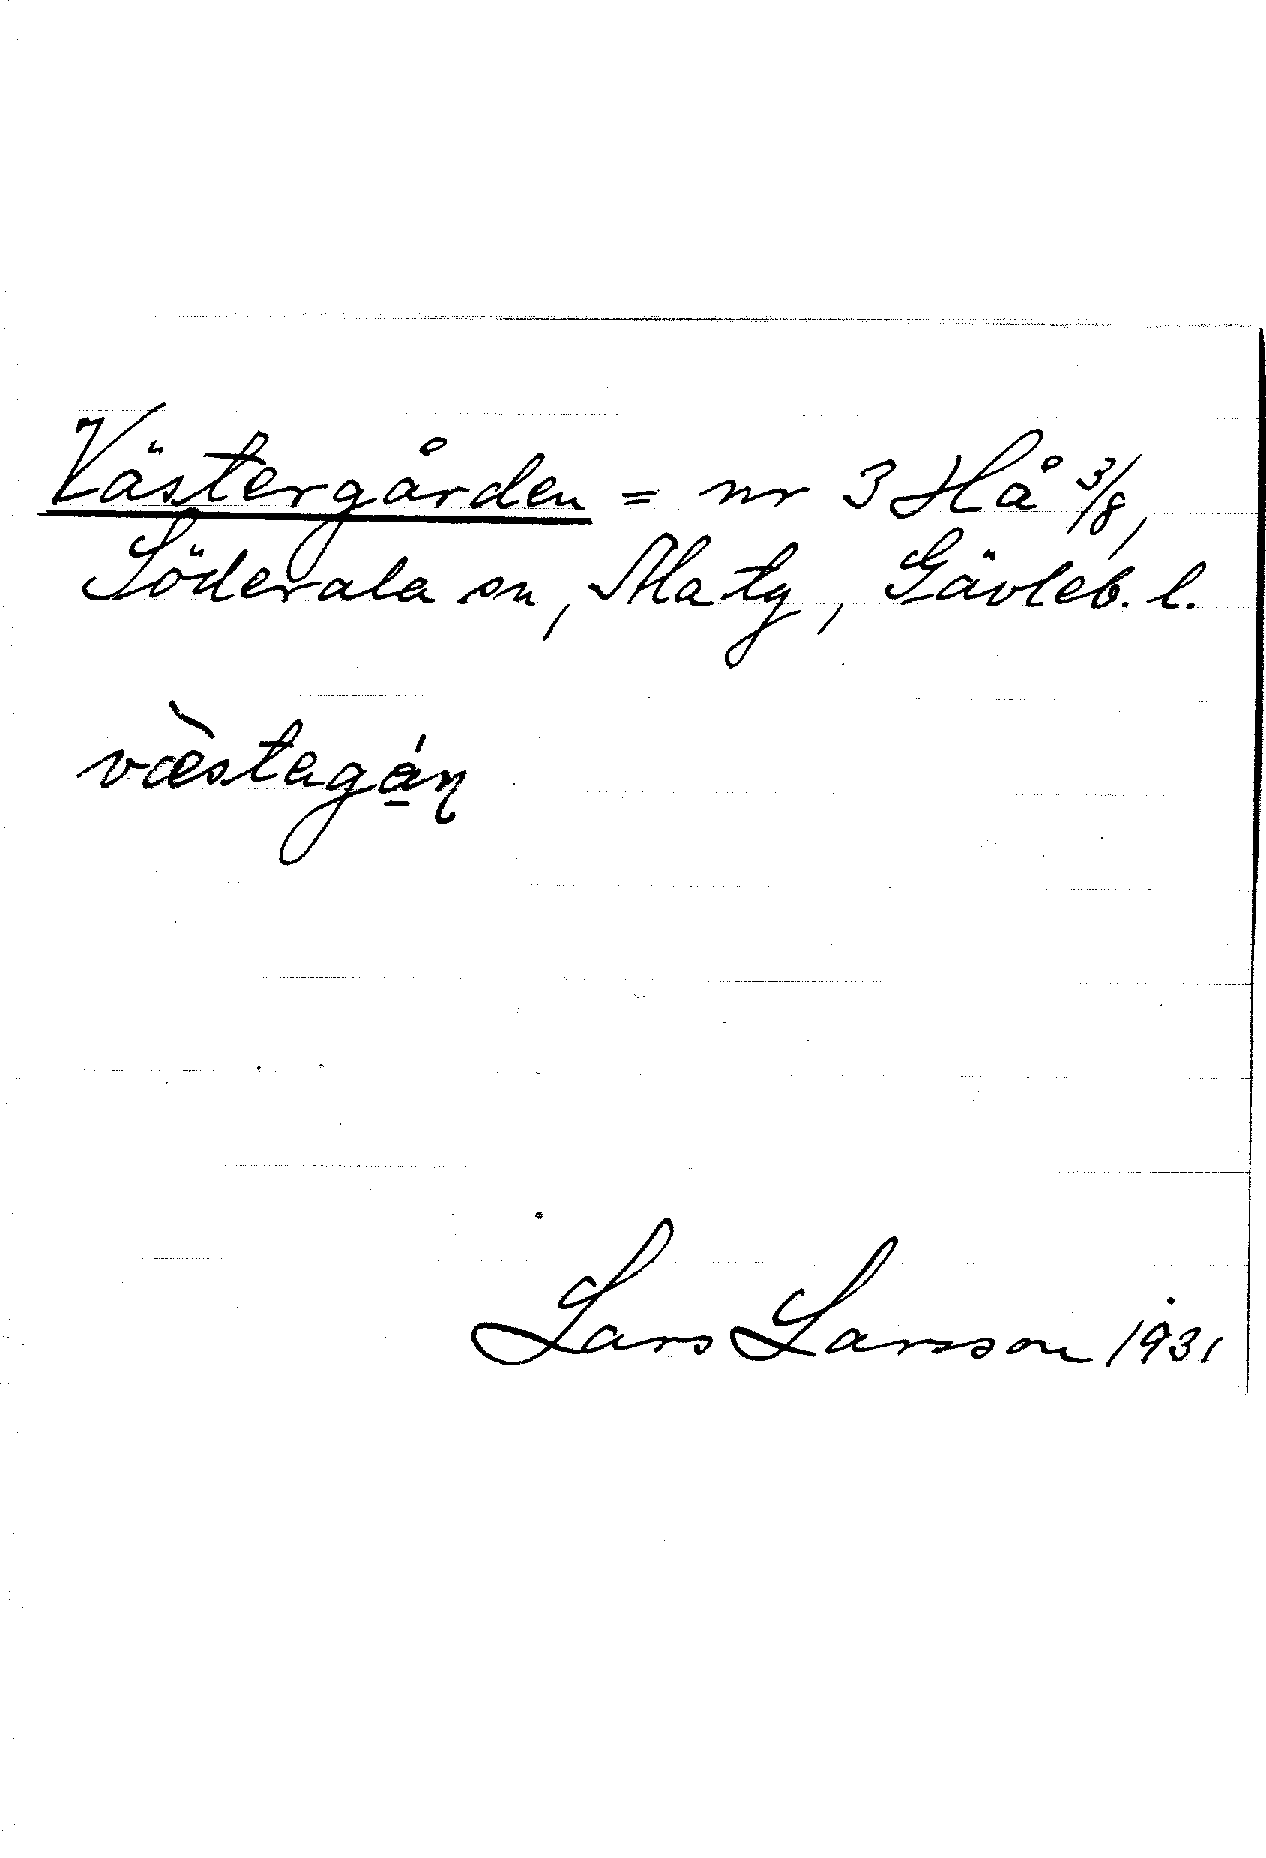 Västergården = nr 3 Hå 3/8,
Söderala sn, Ala tg, Gävleb. l.
væ̀stagá̱ɳ
Lars Larsson 1931